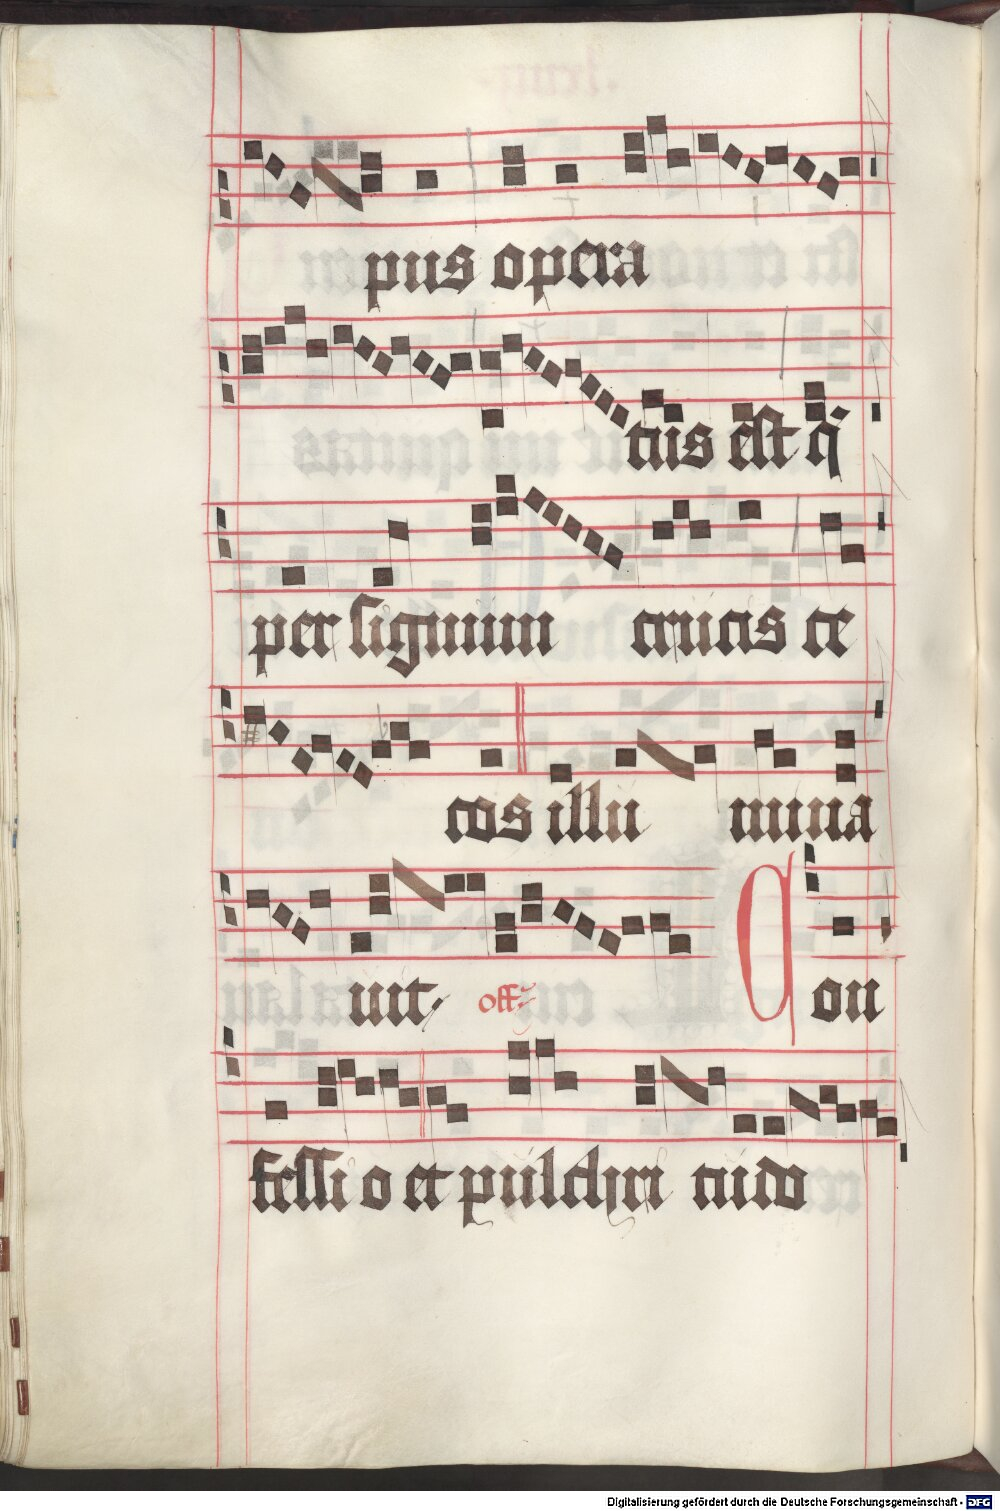 pus opera
tus est q̄
per signum crucis ce
cos illu mina
uit, off̄
Con
fessi o et pulchri tudo
Digitalisierung gefördert durch die Deutsche Forschungsgemeinschaft - DFG